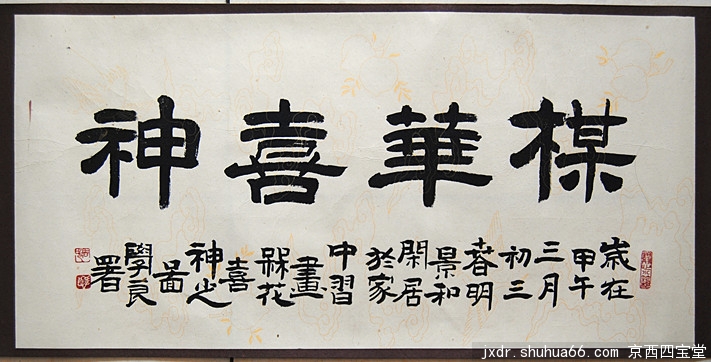 楳華喜神
歲在
甲午
三月
初三
春明
景和
閑居
於家
中習
畫
槑花
喜
神之
圖
學良
署
jxdr.shuhua66.com 京西四宝堂